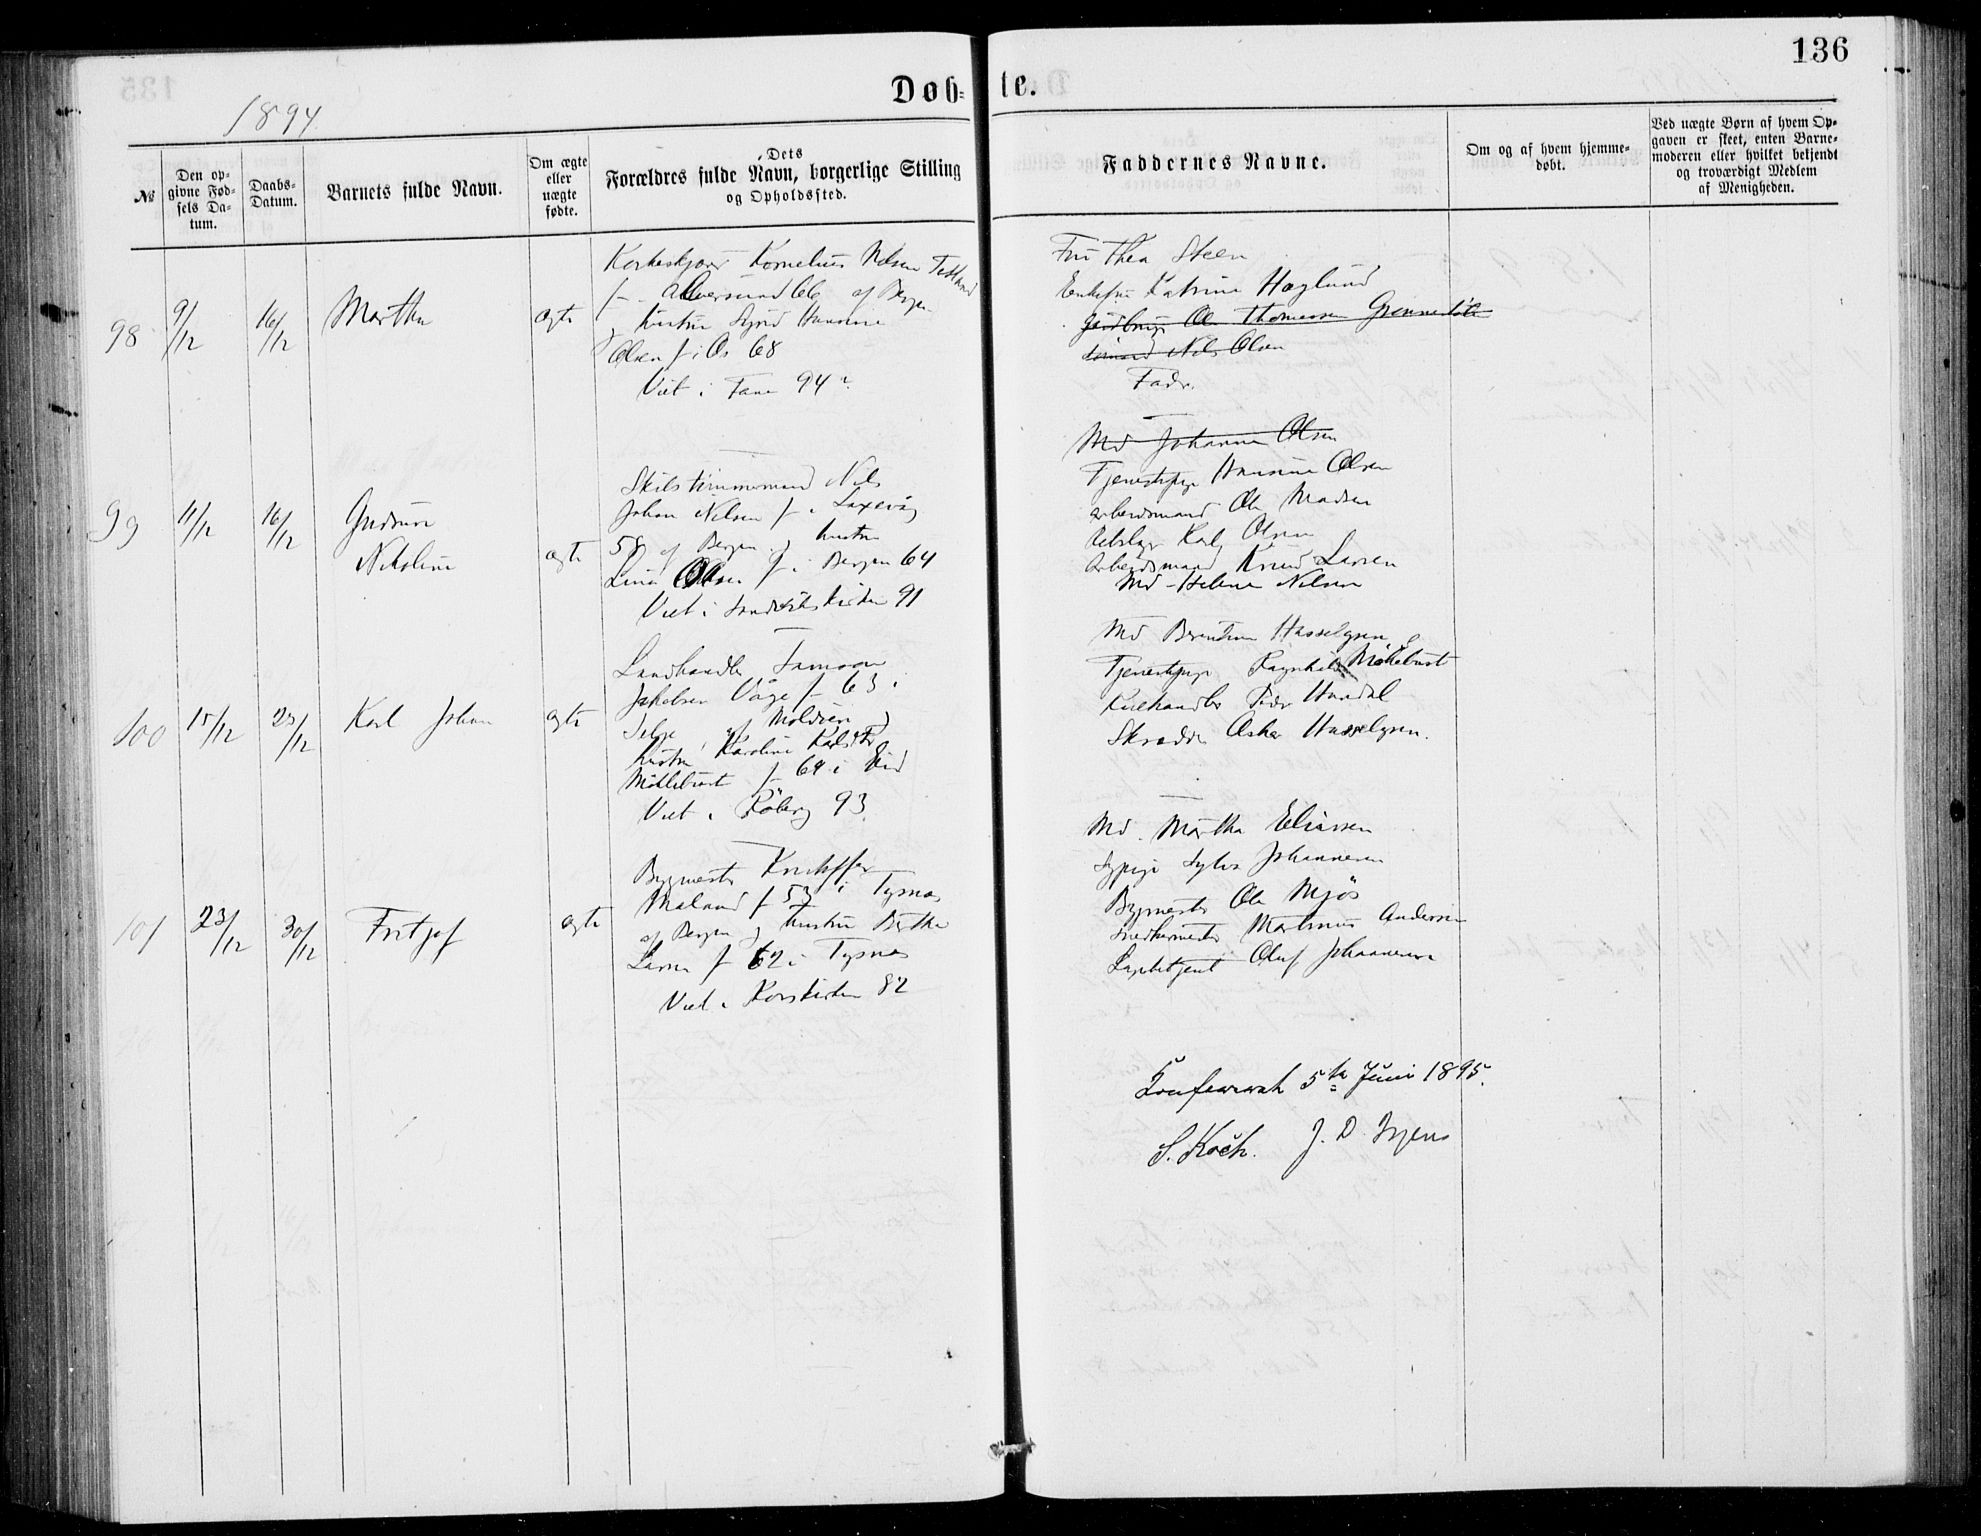 136
Døb= te.
1894
№
Den op-
givne Fød-
sels Da-
tum.
Daabs-
Datum.
Barnets fulde Navn.
Om ægte
eller
uægte
fødte.
Dets
Forældres fulde Navn, borgerlige Stilling
og Opholdssted.
Faddernes Navne.
Om og af hvem hjemme-
døbt.
Ved uægte Børn af hvem Op-
gaven er skeet, enten Barne-
moderen eller hvilket bekjendt
og troværdigt Medlem
af Menigheden.
98
9/12
16/12
Martha
ægte
Korkeskjærer Kornelius Nilsen
f. 66 af Bergen
og Hustru
Olsen f i Os 68
Viet i Fane 94
Fru Thea Steen
Enkefru Katrine Høglund
Ole Thomassen
Nils Olsen
Fadr.
99
11/12
16/12
Gudrun
Nikoline
ægte
Skibstimmermand Nils
Johan Nilsen f i Laxevåg
58 af Bergen og Hustru
Lina Olsen f i Bergen 64
Viet i Sandvikskirken 91
Md Johanne Olsen
Tjenestpige Hansine Olsen
Arbeidsmand Ole Madsen
Rebslager Karl Olsen
Arbeidsmand Knud Larsen
Md Helene Nilsen
100
15/12
23/12
Karl Johan
ægte
Landhandler
Jakobsen Våge f 63 i
Selje af Moldøen og
Hustru Karoline
Møklebust f 64 i Eid
Viet i 93
Md Berentine Hasselgren
Tjenestpige Ragnhild Møklebust
Kulhandler Peder
Skrædder Oskar Hasselgren.
101
23/12
30/12
Fritjof
ægte
Bygmester Kristoffer
Maland f 53 i Tysnæs
af Bergen og Hustru Bertha
Larsen f 62 i Tysnæs
Viet i Korskirken 82
Md. Martha Eliassen
Sypige Sylva Johannesen
Bygmester Ole Mjøs
Snedkermester Martinus Andersen
Oluf Johannesen
Konfereret 5te Juni 1895.
S. Koch. J. D.